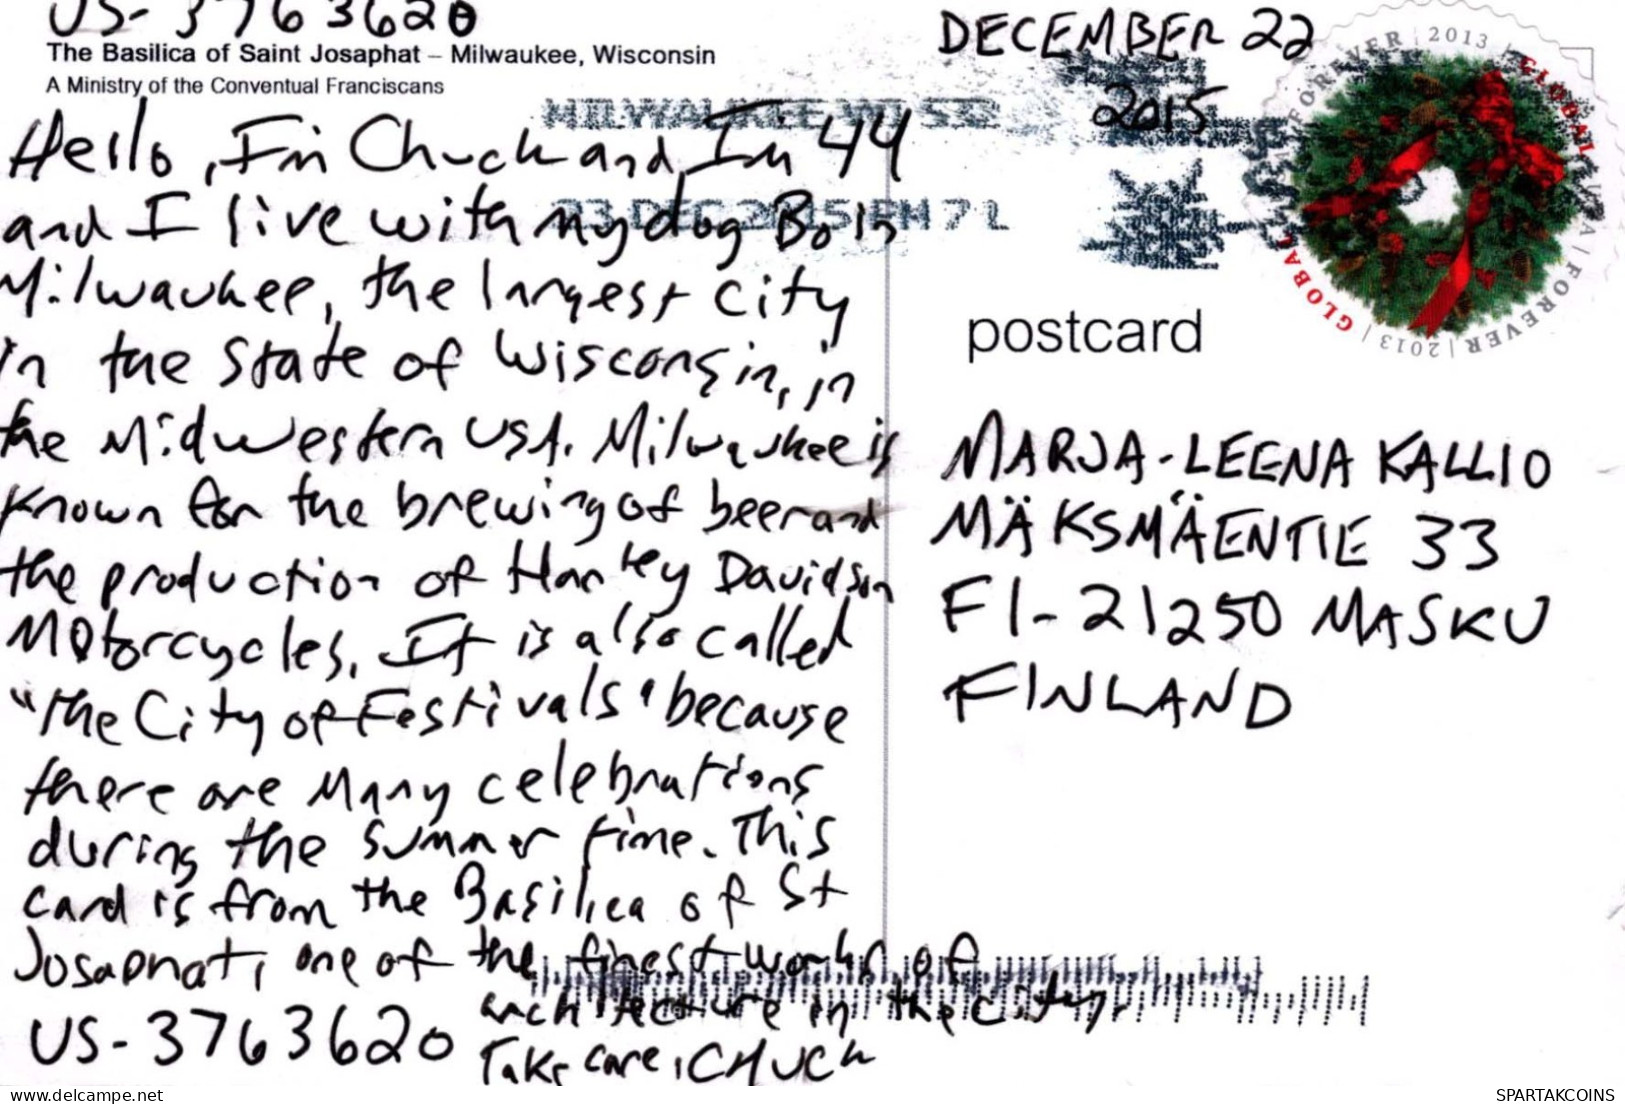 US-3763620
The Basilica of Saint Josaphat – Milwaukee, Wisconsin
A Ministry of the Conventual Franciscans
Hello, I'm Chuck and I'm 44
and I live with my dog Bo in
Milwaukee, the largest city
in the state of Wisconsin, in
the Midwestern USA. Milwaukee is
known for the brewing of beer and
the production of Harley Davidson
Motorcycles. It is also called
"the City of Festivals" because
there are many celebrations
during the summer time. This
card is from the Basilica of St
Josaphat, one of the finest works of
architecture in the city.
US-3763620
Take care, CHUCK
DECEMBER 22
2015
MILWAUKEE WI 532
23 DEC 2015 PM 7 L
FOREVER | 2013 | GLOBAL | USA | FOREVER | 2013 | GLOBAL
postcard
MARJA-LEENA KALLIO
MÄKSMÄENTIE 33
FI-21250 MASKU
FINLAND
delcampe.net
SPARTAKCOINS